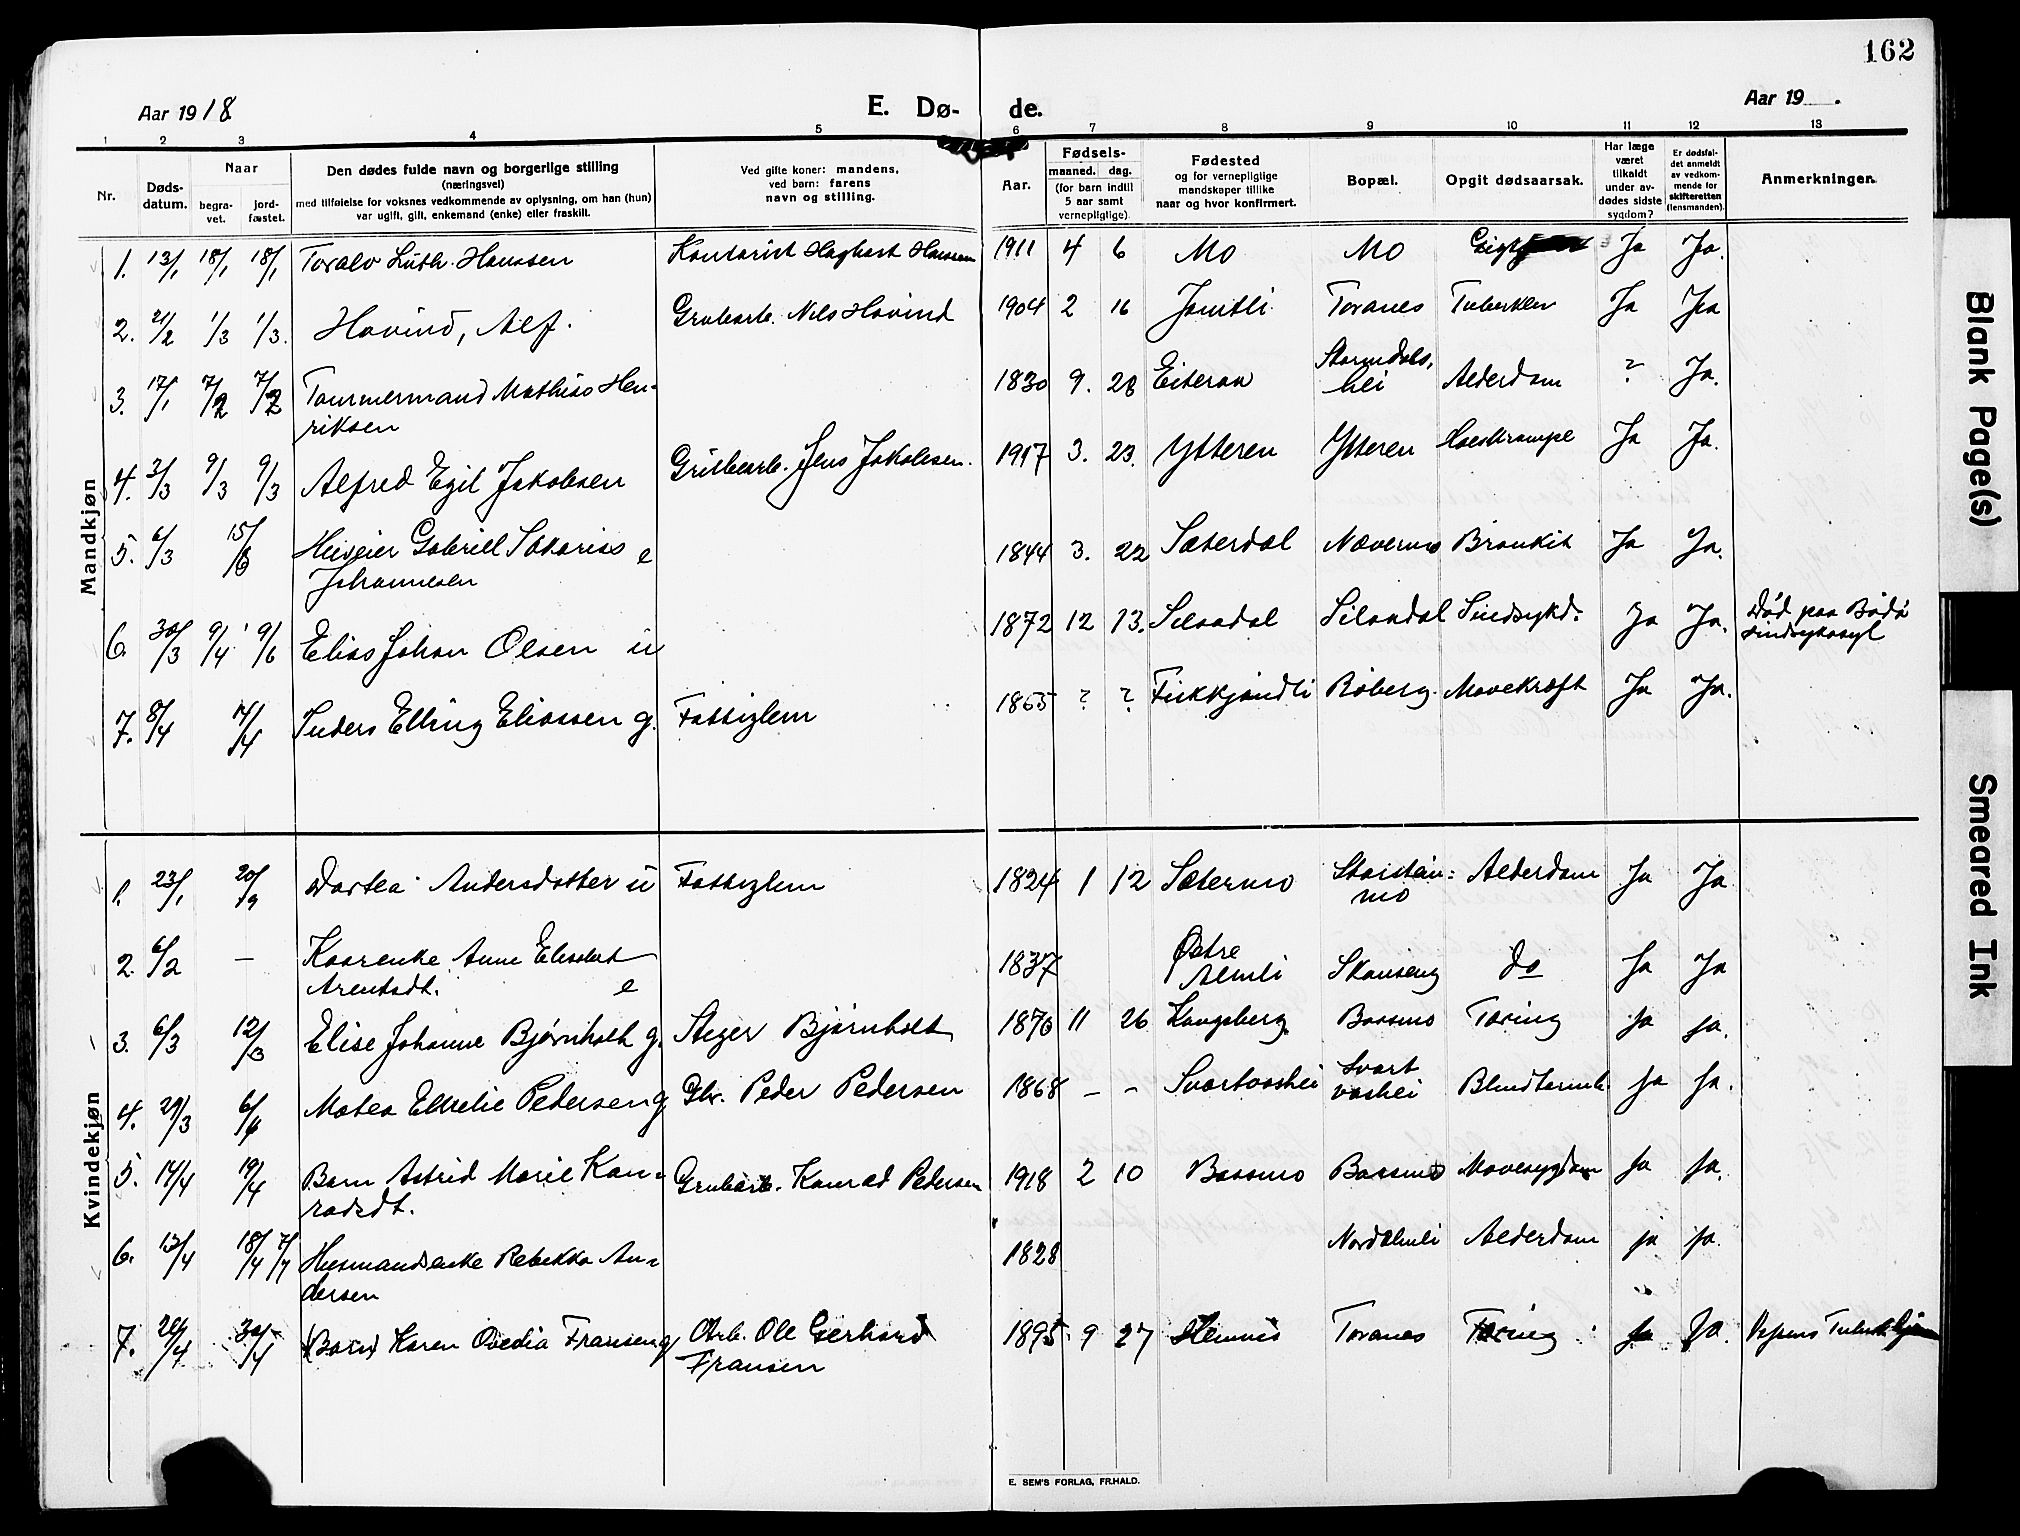 162
Aar 1918
E. Dø-
de.
Aar 19 .
1 2 3 4 5 6 7 8 9 10 11 12 13
Nr.
Døds-
datum.
Naar
begra-
vet.
jord-
fæstet.
Den dødes fulde navn og borgerlige stilling
(næringsvei)
med tilføielse for voksnes vedkommende av oplysning, om han (hun)
var ugift, gift, enkemand (enke) eller fraskilt.
Ved gifte koner: mandens,
ved barn: farens
navn og stilling.
Aar.
Fødsels-
maaned. dag.
(for barn indtil
5 aar samt
vernepligtige).
Fødested
og for vernepligtige
mandskaper tillike
naar og hvor konfirmert.
Bopæl.
Opgit dødsaarsak.
Har læge
været
tilkaldt
under av-
dødes sidste
sygdom?
Er dødsfal-
det anmeldt
av vedkom-
mende for
skifteretten
(lensmanden).
Anmerkninger.
Mandkjøn
1. 13/1 18/1 18/1 Toralv Luth. Hanssen Kontorist Hagbart Hanssen 1911 4 6 Mo Mo Ja Ja.
2. 21/2 1/3 1/3. Hovind, Alf. Grubearb. Nils Hovind 1904 2 16 Jamtli Toranes Tuberkler Ja Ja
3. 17/1 7/2 7/2 Tømmermand Mathias Hen-
riksen 1830 9. 28 Eiteraa Stormdals-
hei Alderdom ? Ja.
4. 3/3 9/3 9/3 Alfred Egil Jakobsen Grubearb. Jens Jakobsen. 1917 3. 23. Ytteren Ytteren Halskrampe Ja Ja.
5. 6/3 15/6 Huseier Gabriell Sakarias e
Johannesen 1844 3. 22 Sæterdal Nævermo Bronkit Ja Ja.
6. 30/3 9/4 9/6 Elias Johan Olsen u 1872 12 13. Silaadal Silaadal Sindsykd. Ja Ja. Død paa Bodø
sindsykeasyl
7. 8/4 /4 Elling Eliassen g. Fattiglem 1865 ? ? Røberg. Mavekræft Ja Ja.
Kvindekjøn
1. 23/1 20/9 Dortea Andersdatter u Fattiglem 1824 1 12 Sætermo
mo Alderdom Ja Ja
2. 6/2 — Kaarenke Anne Elisabet
Arentsdt. e 1837 Østre
Almli Skonseng do Ja Ja
3. 6/3 12/3 Elise Johanne Bjørnholt g. Steger Bjørnholt 1876 11 26 Kongsberg. Baasmo Tæring ja ja.
4. 29/3 6/6 Matea Pedersen g Gbr. Peder Pedersen 1868 - - Svartvashei Svart
vashei Blindtarmb. ja ja.
5. 14/4 19/4 Barn Astrid Marie Kon-
radsdt. Grubearb. Konrad Pedersen 1918 2 10 Baasmo Baasmo Mavesygdom ja ja.
6. 13/4 18/4 7/7 Husmandsenke Rebekka An-
dersen 1828 Alderdom ja ja.
7. 20/4 30/4 (Barn) Karen Ovedia Fransen g Arb. Ole Gerhard
Fransen 1895 9 27 Hemnes Toranes Tæring ja Ja.
E. SEM'S FORLAG, FR.HALD.
Blank Page(s)
Smeared Ink